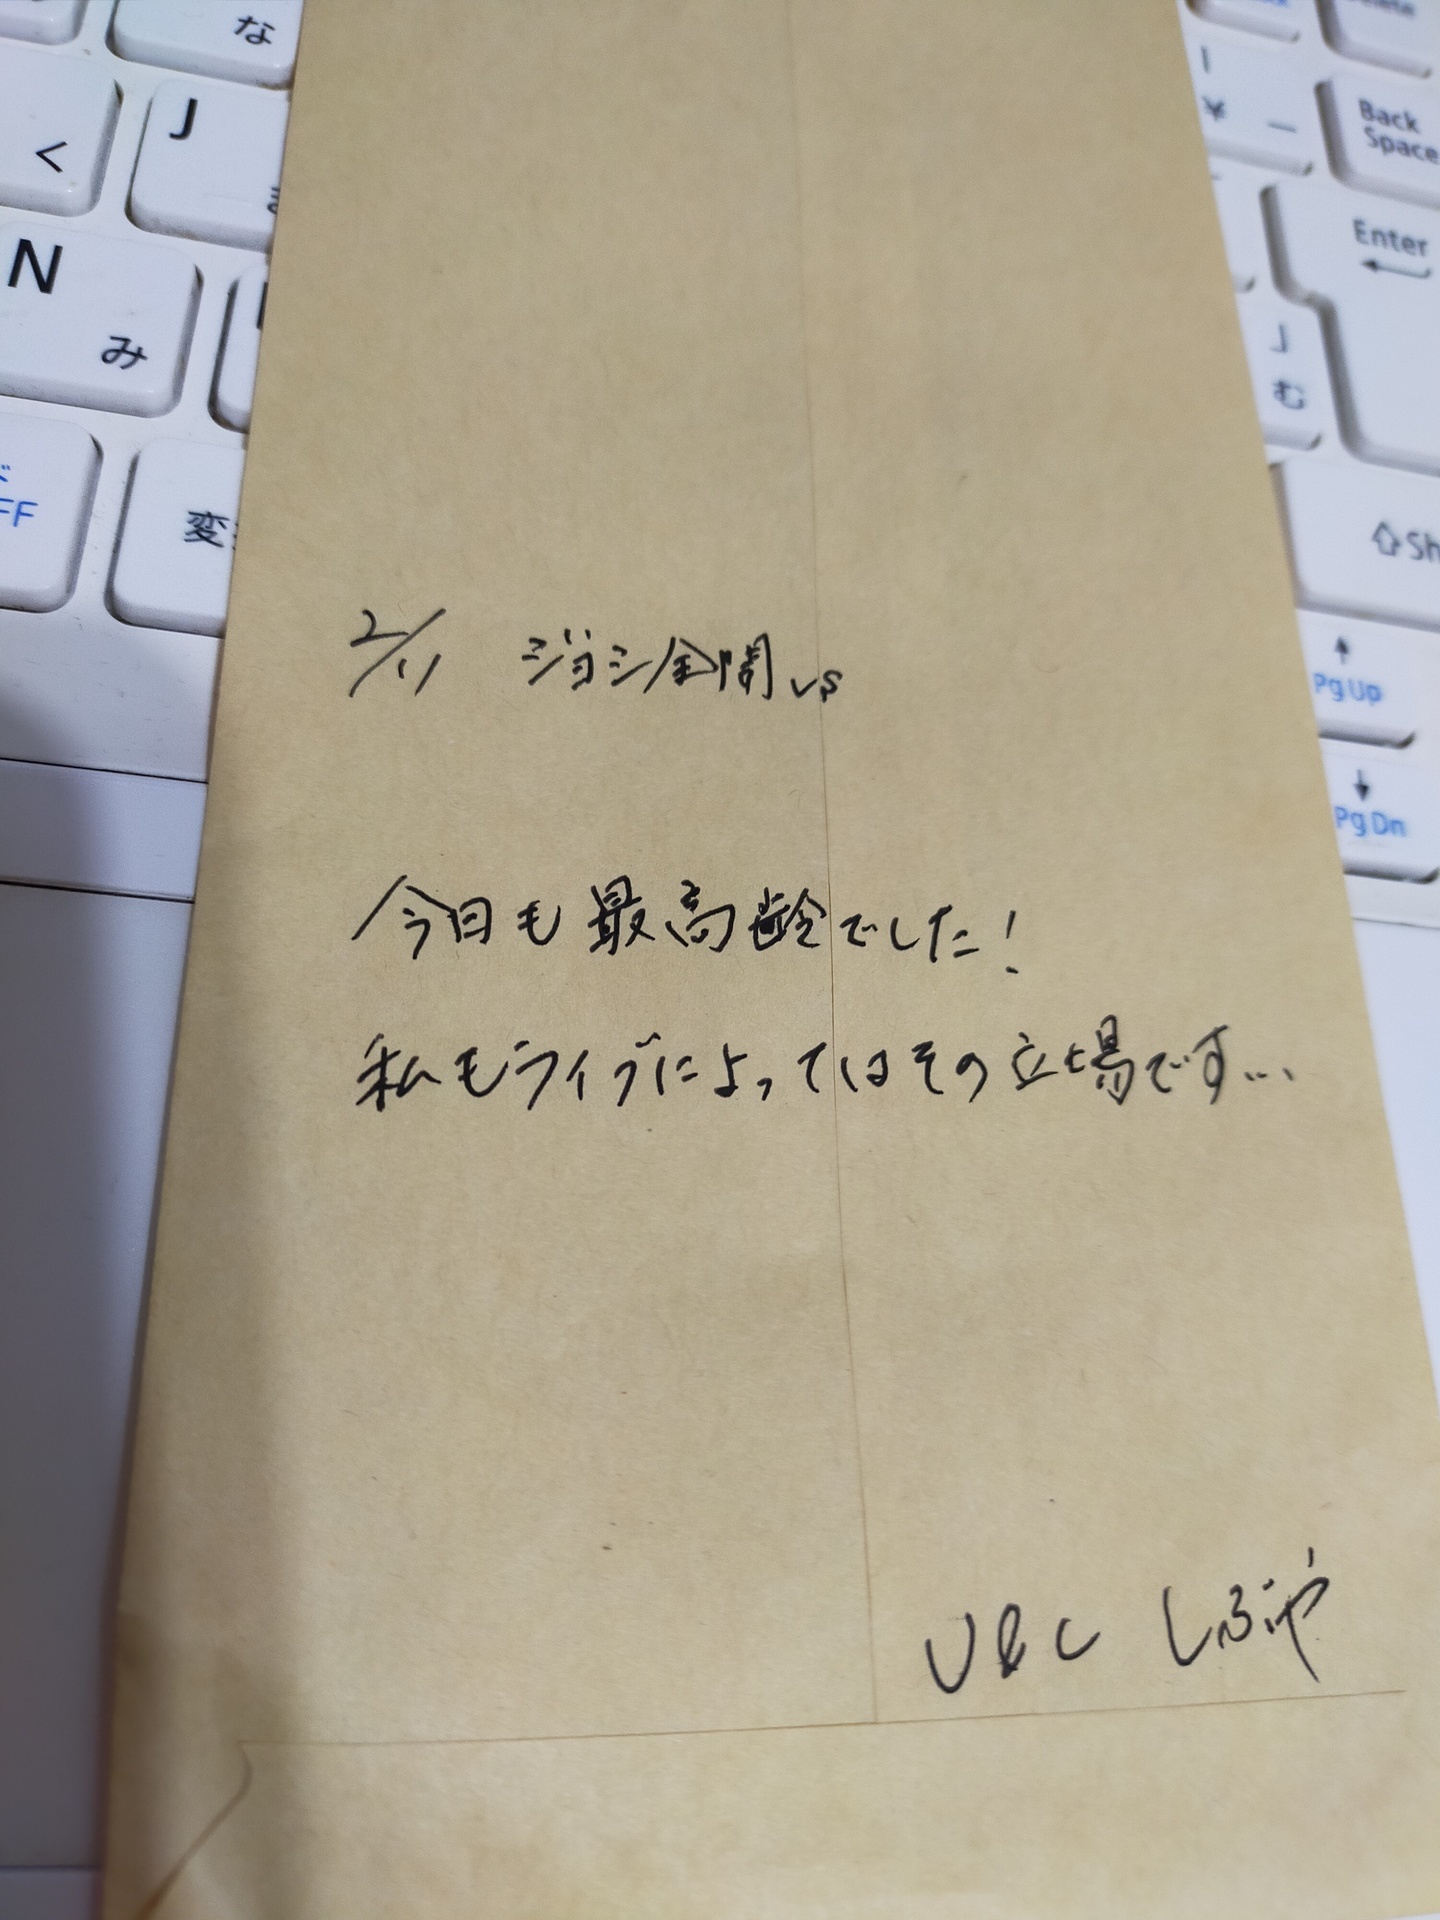 な
く
J
N
み
FF
変
¥
Back
Space
Enter
む
Sh
Pg Up
Pg Dn
2/11 ジョシ全開 vs
今日も最高齢でした!
私もライブによってはその立場です...
しぶや